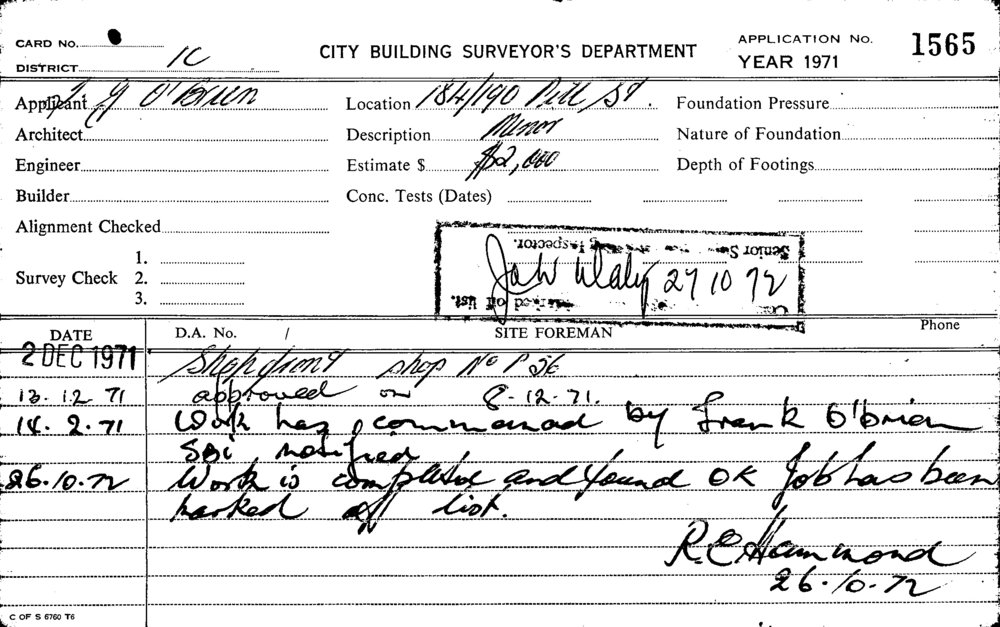 CARD No.
DISTRICT 1C
CITY BUILDING SURVEYOR'S DEPARTMENT
APPLICATION No. 1565
YEAR 1971
Applicant J. O'Brien
Location 184/190 Pitt St.
Foundation Pressure
Architect
Description Minor
Nature of Foundation
Engineer
Estimate $ $2,000
Depth of Footings
Builder
Conc. Tests (Dates)
Alignment Checked
Survey Check 1.
2.
3.
Senior
Inspector.
27 10 72
off list.
DATE
D.A. No. /
SITE FOREMAN
Phone
2 DEC 1971
Shopfront shop No P 56
13. 12. 71 approved on 8-12-71.
14. 2. 71 Work has commenced by Frank O'Brien
SBI notified
26.10.72 Work is completed and found OK Job has been
marked off list.
R.E Hammond
26.10.72
C OF S 6760 T6